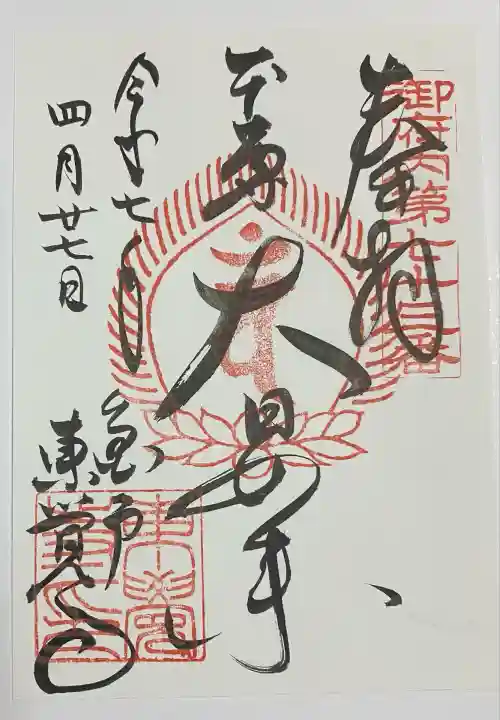 御府内第七十三番
奉拝
本尊
大日如来
令和七年
四月廿七日
亀戸
東覚寺